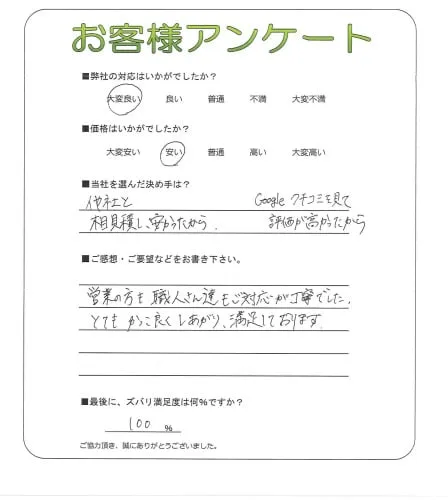 お客様アンケート
■弊社の対応はいかがでしたか？
大変良い 良い 普通 不満 大変不満
■価格はいかがでしたか？
大変安い 安い 普通 高い 大変高い
■当社を選んだ決め手は？
他社と Google クチコミを見て
相見積し、安かったから. 評価が高かったから
■ご感想・ご要望などをお書き下さい。
営業の方も 職人さん達もご対応が丁寧でした.
とても かっこ良く しあがり、満足しております.
■最後に、ズバリ満足度は何％ですか？
100 %
ご協力頂き、誠にありがとうございました。